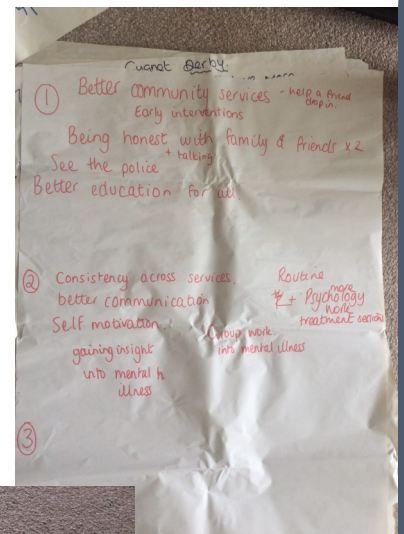 Derby
① Better community services - help a friend drop in.
Early interventions
Being honest with family & friends x2
+ talking
See the police
Better education for all.
② Consistency across services,
better communication
Self motivation.
gaining insight
into mental h
illness
Routine
+ more Psychology
work
treatment sessions
Group work
into mental illness
③